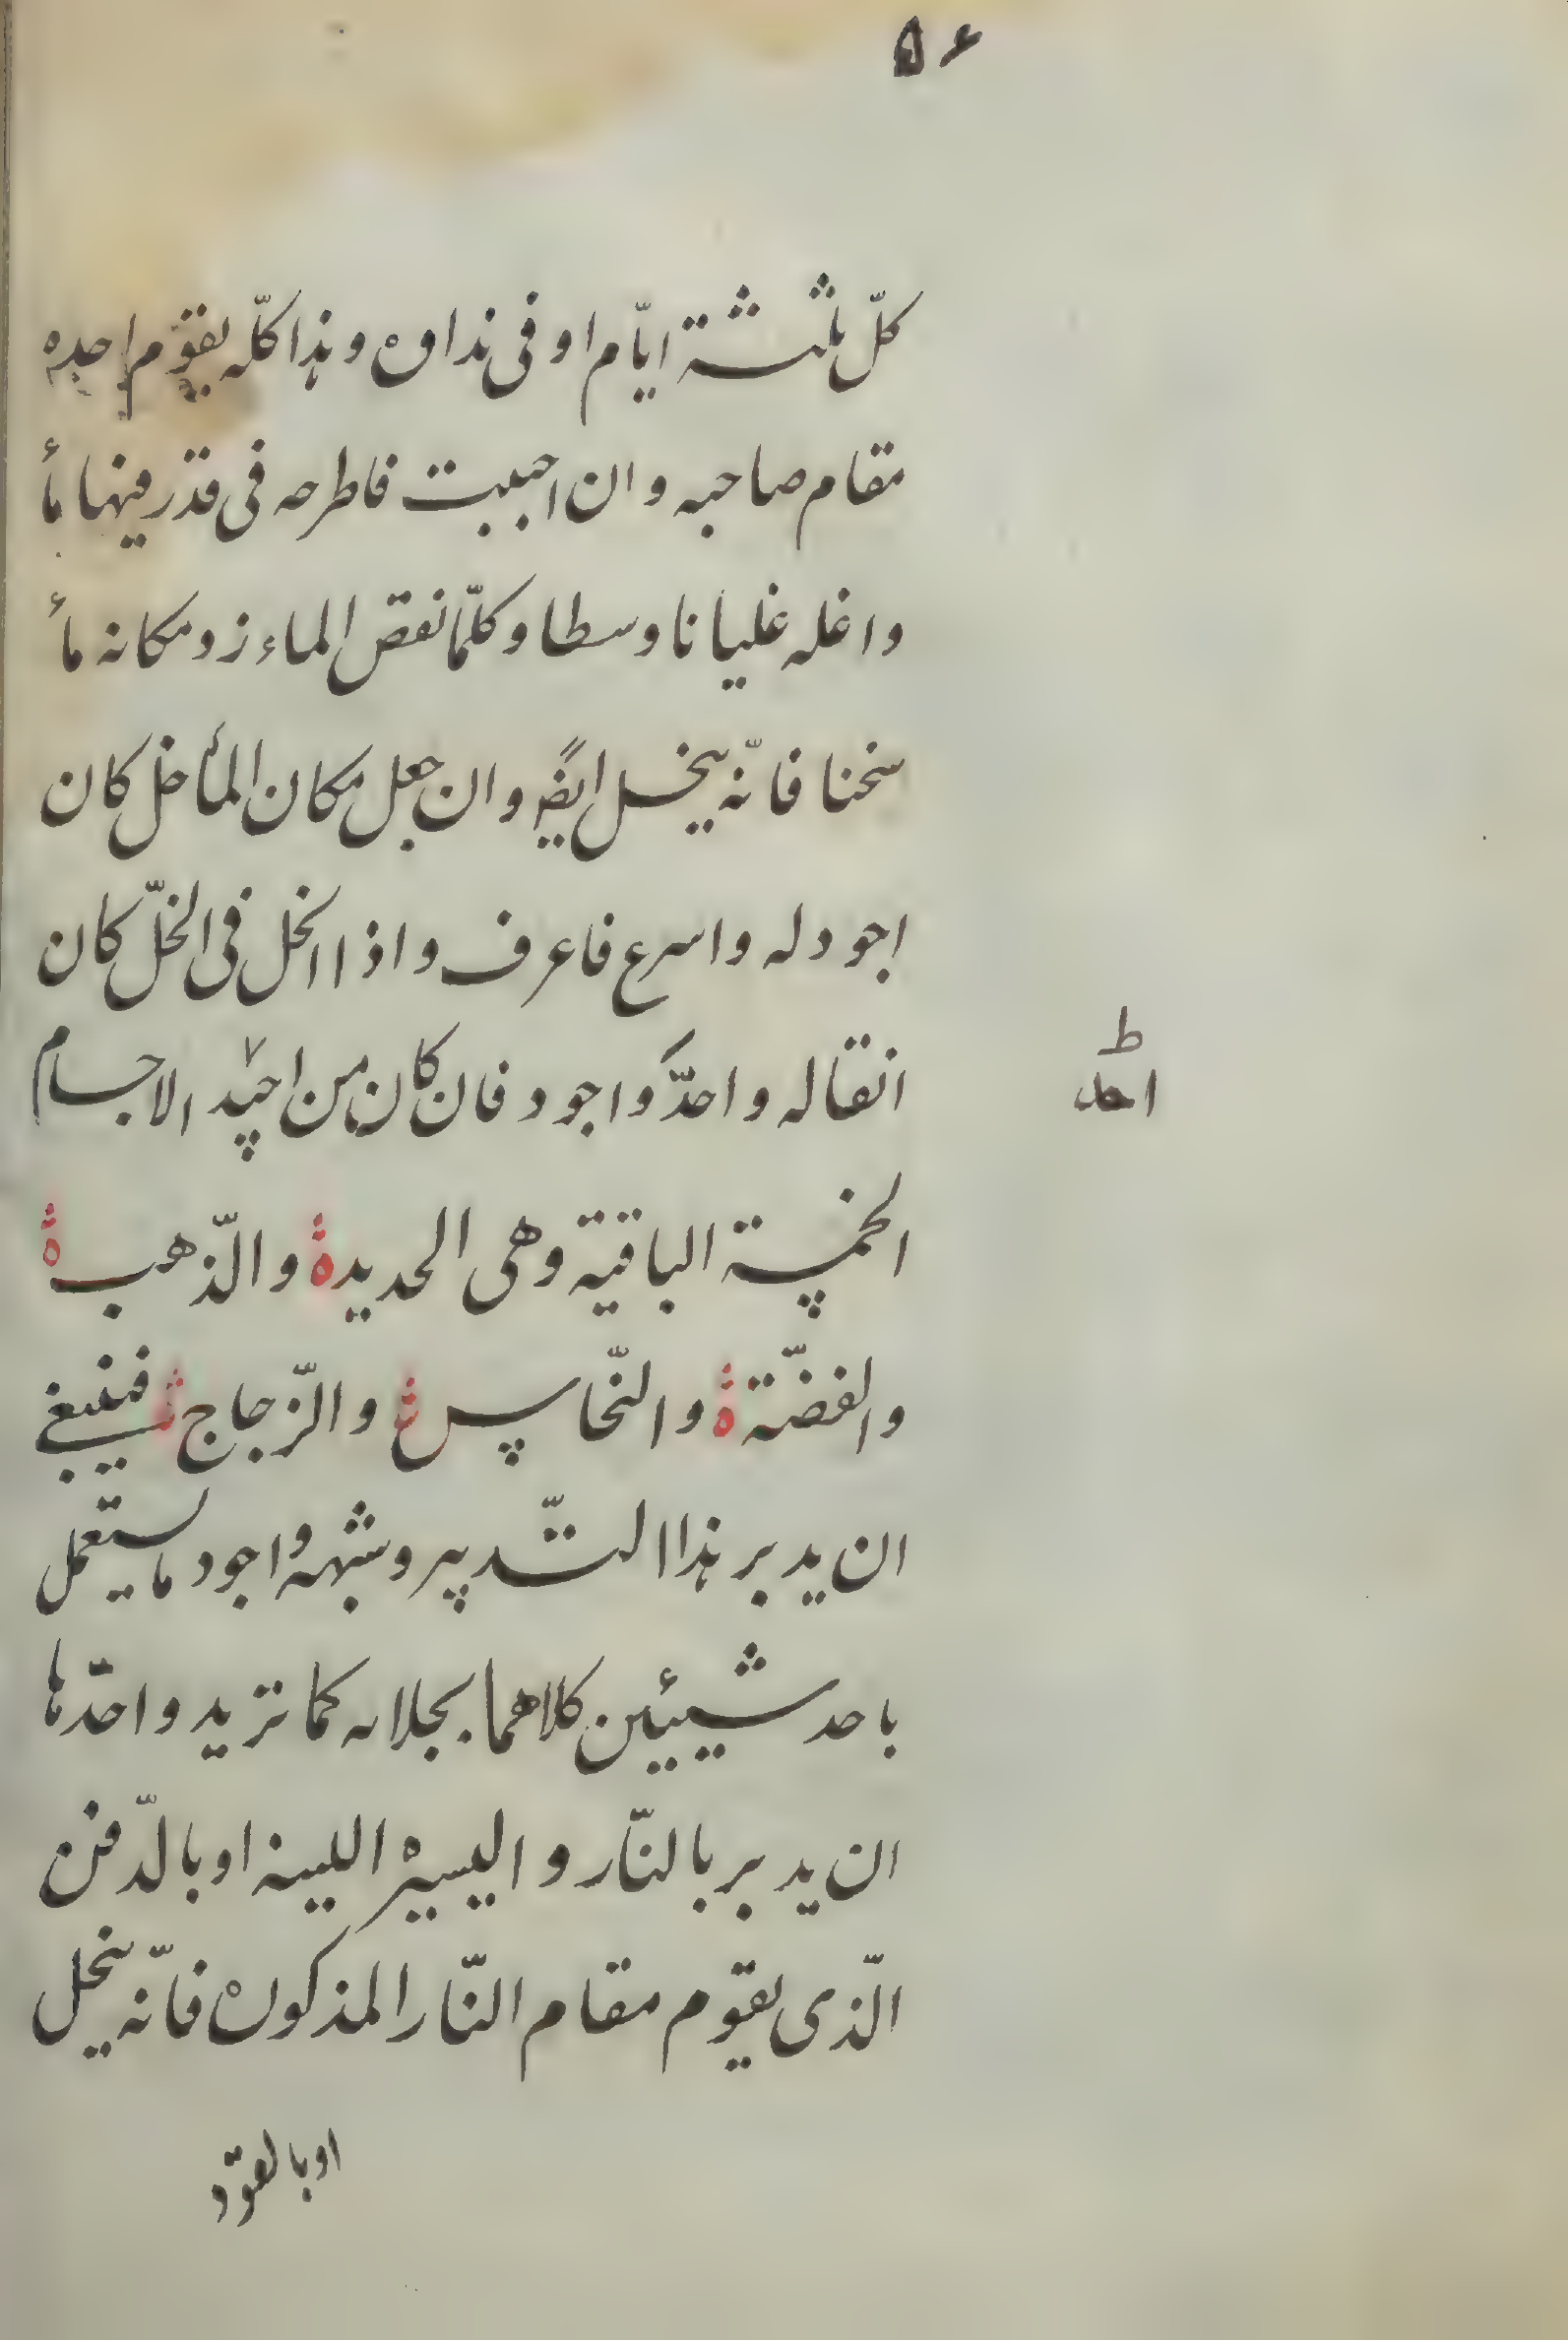 ۵۶
كلّ ثلثة ايّام او فى نداوه وهذا كلّه يقوّم احده
مقام صاحبه وان احببت فاطرحه فى قدر فيها مأ
واغله غليانا وسطا وكلّما نقص الماء زد مكانه مأ
سخنا فانّه ينحل ايضً وان جعل مكان المأ خل كان
اجود له واسرع فاعرف واذا انحل فى الخلّ كان
انقاله واحدّ واجود فان كان من احيد الاجسام
ط
احد
الخمسة الباقية وهى الحديدة والذّهب ة
والفضّة ة والنّحاس والزّجاج فينبغى
ان يدبر هذا التّدبير وشبهه واجود ما يستعمل
باحد شيئين كلاهما يحلانه كما تريد واحدّها
ان يدبر بالنّار واليسيره اللينه او بالدّفن
الّذى يقوّم مقام النّار المذكوره فانّه ينحل
او بالقوّد